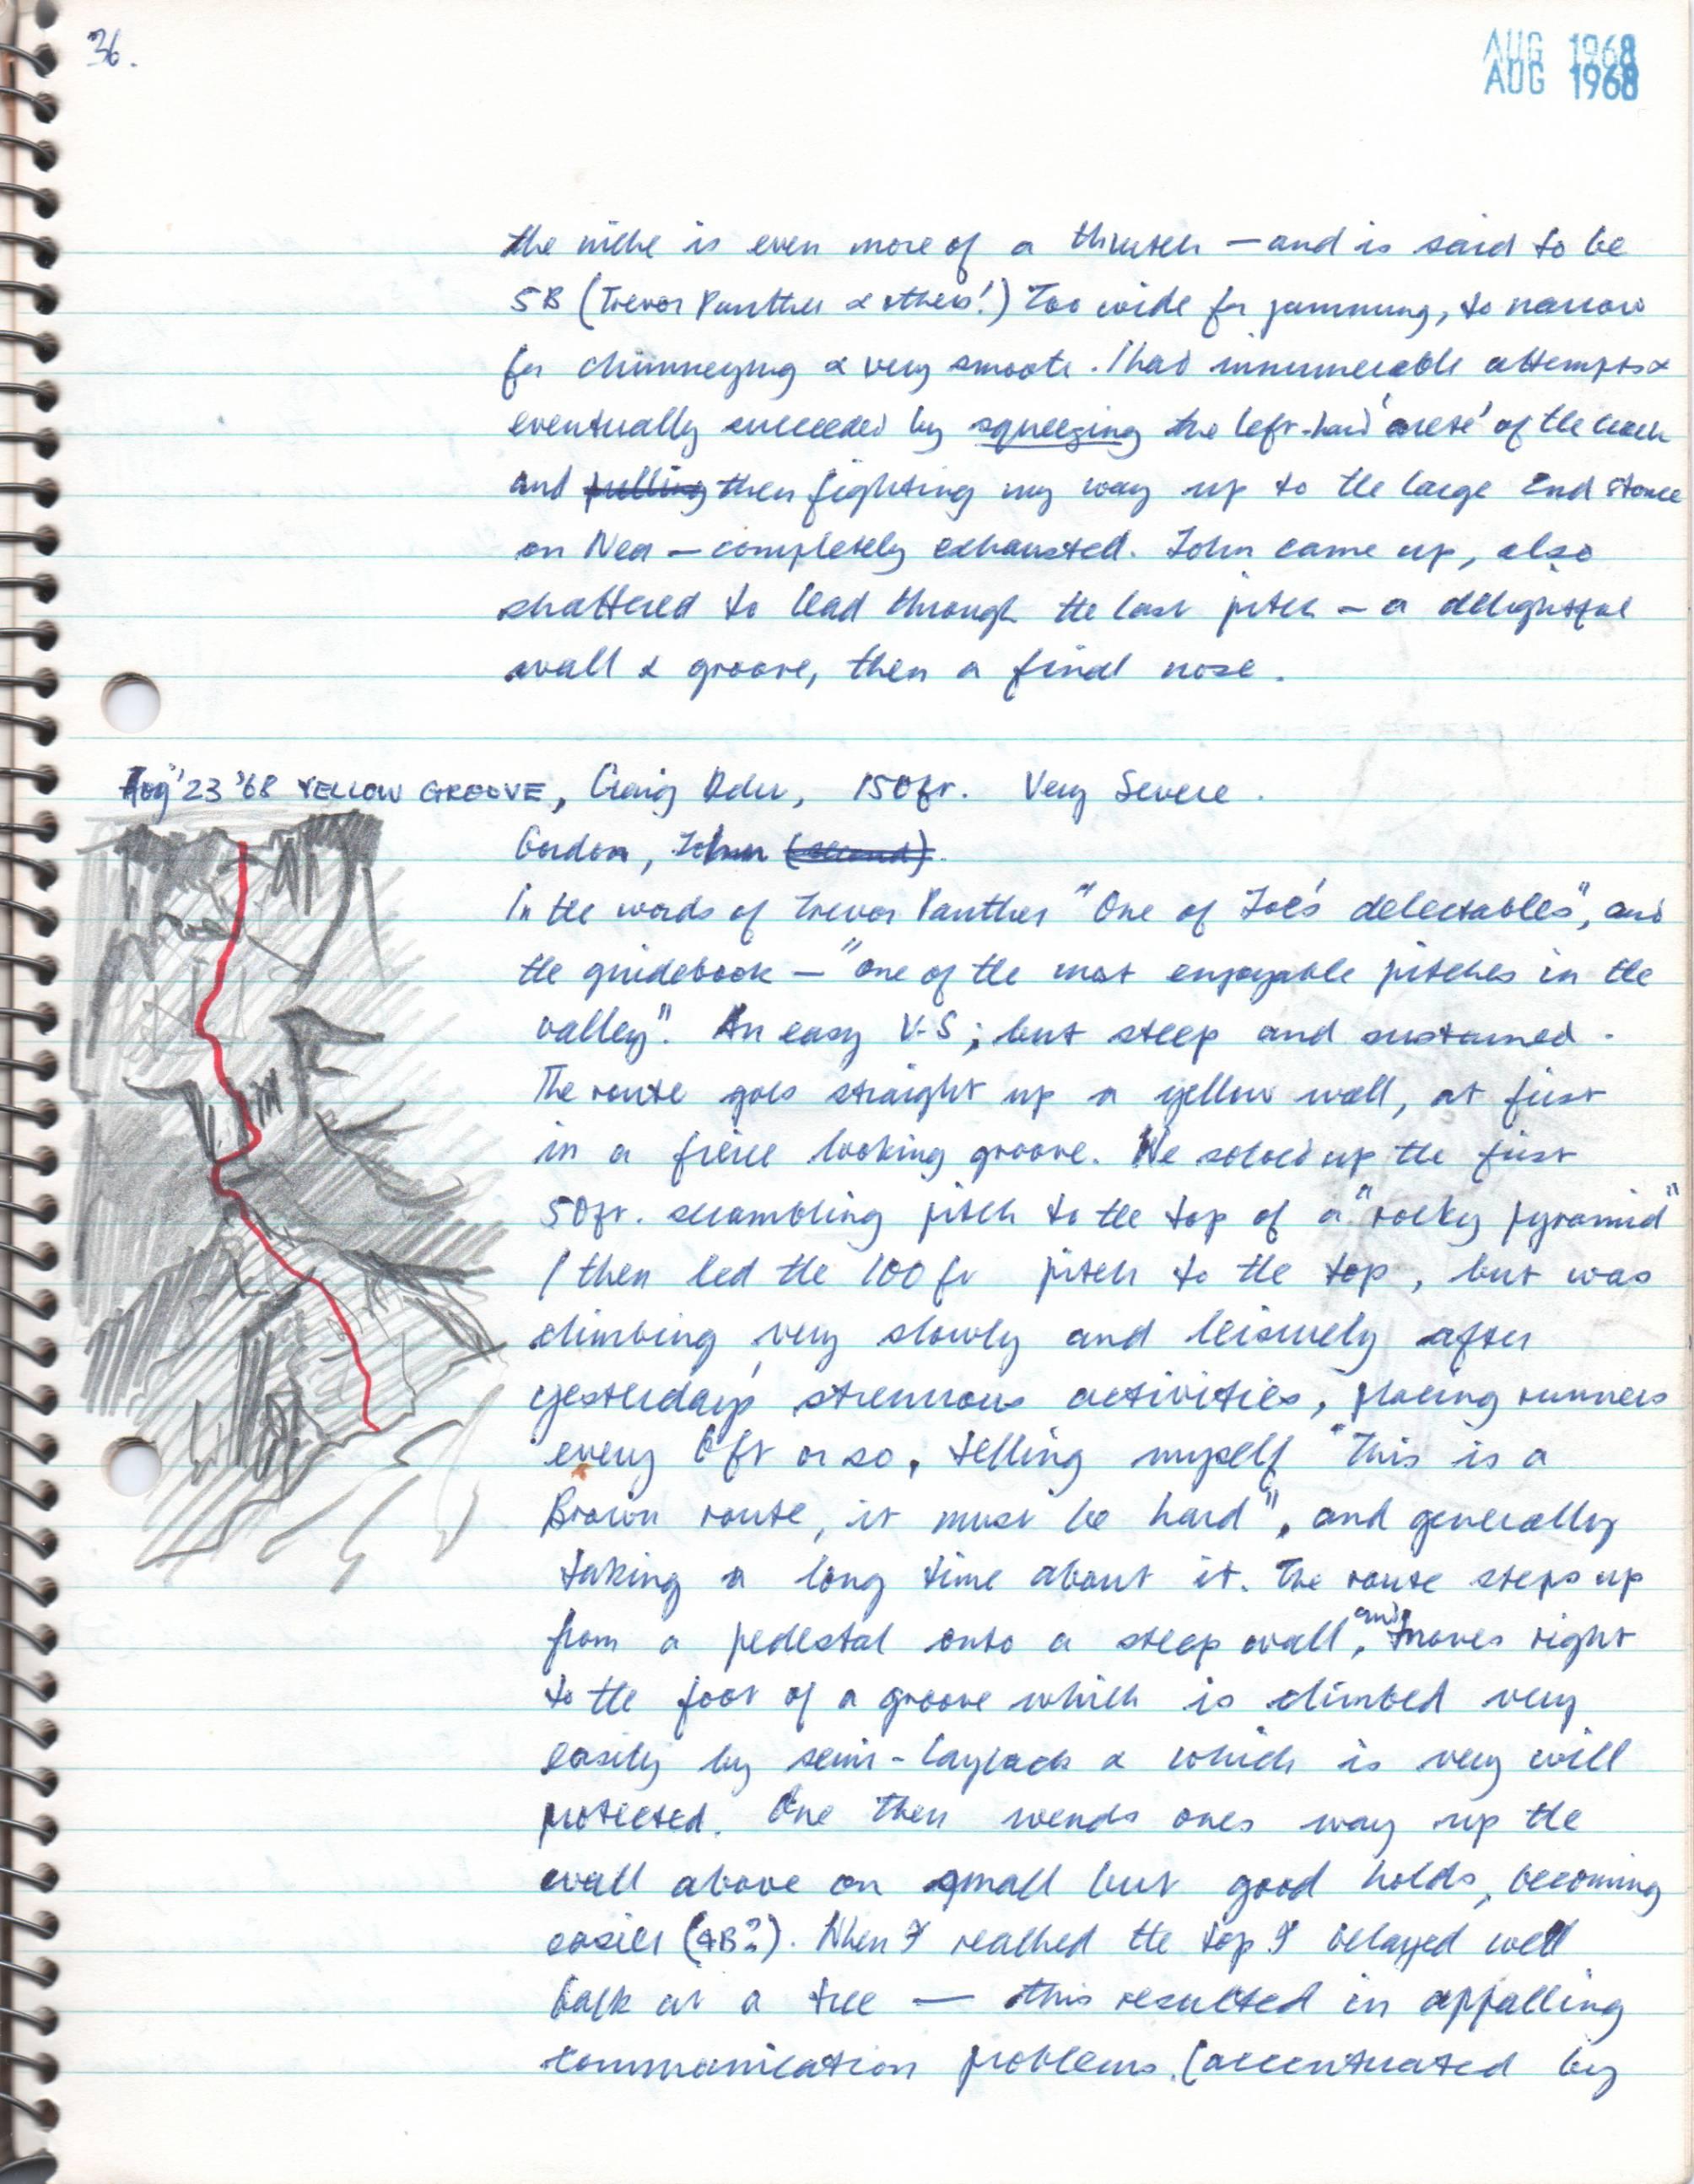 36.
AUG 1968
AUG 1968
the niche is even more of a thrutch — and is said to be
5B (Trevor Panther & others!) Too wide for jamming, to narrow
for chimneying & very smooth. I had innumerable attempts &
eventually succeeded by squeezing the left-hand 'arete' of the crack
and pulling then fighting my way up to the large 2nd stance
on Nea — completely exhausted. John came up, also
shattered to lead through the last pitch — a delightful
wall & groove, then a final nose.
Aug '23 '68 YELLOW GROOVE, Craig Ddu, 150ft. Very Severe.
Gordon, John (second).
In the words of Trevor Panther "One of Joe's delectables", and
the guidebook — "one of the most enjoyable pitches in the
valley". An easy V.S; but steep and sustained.
The route goes straight up a yellow wall, at first
in a fierce looking groove. We soloed up the first
50ft. scrambling pitch to the top of a "rocky pyramid"
I then led the 100 ft pitch to the top, but was
climbing very slowly and leisurely after
yesterday's strenuous activities, placing runners
every 6ft or so, telling myself "This is a
Brown route, it must be hard", and generally
taking a long time about it. The route steps up
from a pedestal onto a steep wall, and moves right
to the foot of a groove which is climbed very
easily by semi-layback & which is very well
protected. One then wends ones way up the
wall above on small but good holds, becoming
easier (4B?). When I reached the top I belayed well
back at a tree — this resulted in appalling
communication problems (accentuated by